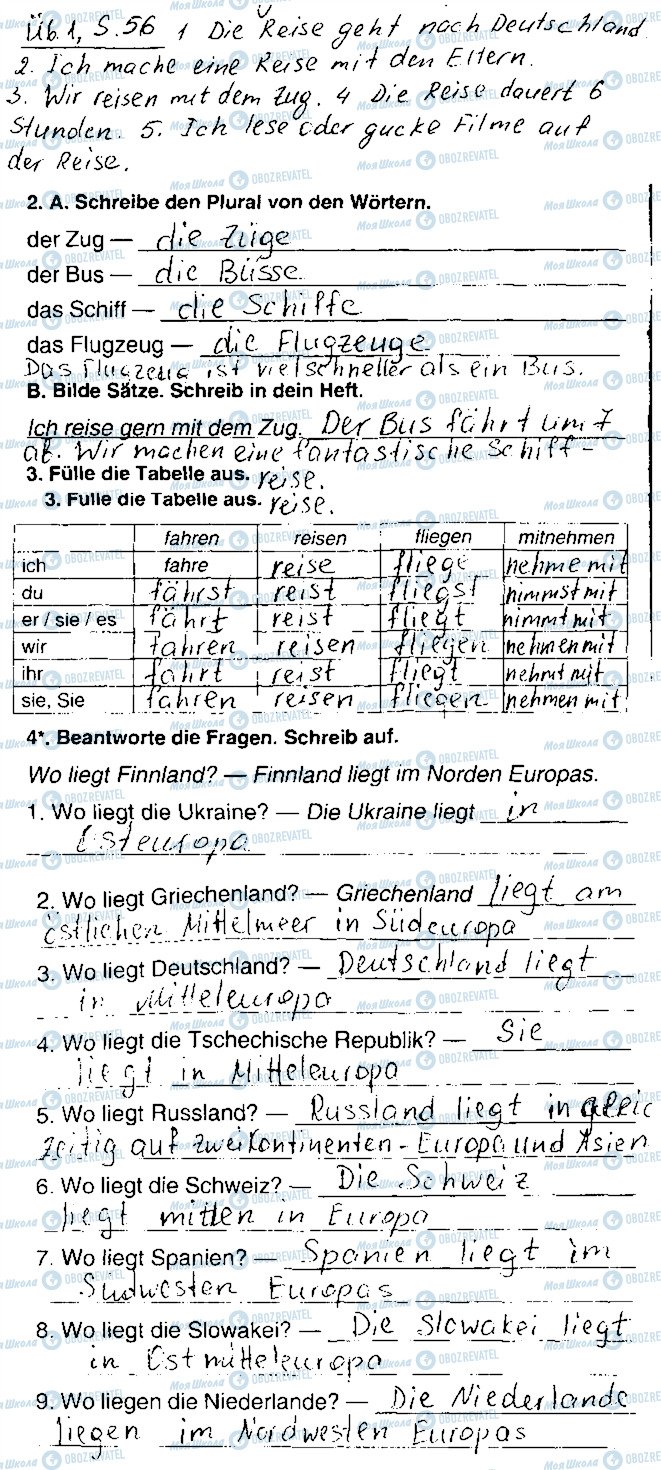 Üb.1, S.56 1 Die Reise geht nach Deutschland
2. Ich mache eine Reise mit den Eltern.
3. Wir reisen mit dem Zug. 4 Die Reise dauert 6
Stunden. 5. Ich lese oder gucke Filme auf
der Reise.
2. A. Schreibe den Plural von den Wörtern.
der Zug — die Züge
der Bus — die Büsse
das Schiff — die Schiffe
das Flugzeug — die Flugzeuge
Das Flugzeug ist viel schneller als ein Bus.
B. Bilde Sätze. Schreib in dein Heft.
Ich reise gern mit dem Zug. Der Bus fährt um 7
ab. Wir machen eine fantastische Schiff-
3. Fülle die Tabelle aus. reise.
3. Fulle die Tabelle aus. reise.
fahren reisen fliegen mitnehmen
ich fahre reise fliege nehme mit
du fährst reist fliegst nimmst mit
er / sie / es fährt reist fliegt nimmt mit
wir fahren reisen fliegen nehmen mit
ihr fahrt reist fliegt nehmt mit
sie, Sie fahren reisen fliegen nehmen mit
4*. Beantworte die Fragen. Schreib auf.
Wo liegt Finnland? — Finnland liegt im Norden Europas.
1. Wo liegt die Ukraine? — Die Ukraine liegt in
Osteuropa
2. Wo liegt Griechenland? — Griechenland liegt am
östlichen Mittelmeer in Südeuropa
3. Wo liegt Deutschland? — Deutschland liegt
in Mitteleuropa
4. Wo liegt die Tschechische Republik? — Sie
liegt in Mitteleuropa
5. Wo liegt Russland? — Russland liegt in gleic
zeitig auf zwei Kontinenten - Europa und Asien
6. Wo liegt die Schweiz? — Die Schweiz
liegt mitten in Europa
7. Wo liegt Spanien? — Spanien liegt im
Südwesten Europas
8. Wo liegt die Slowakei? — Die Slowakei liegt
in Ostmitteleuropa
9. Wo liegen die Niederlande? — Die Niederlande
liegen im Nordwesten Europas